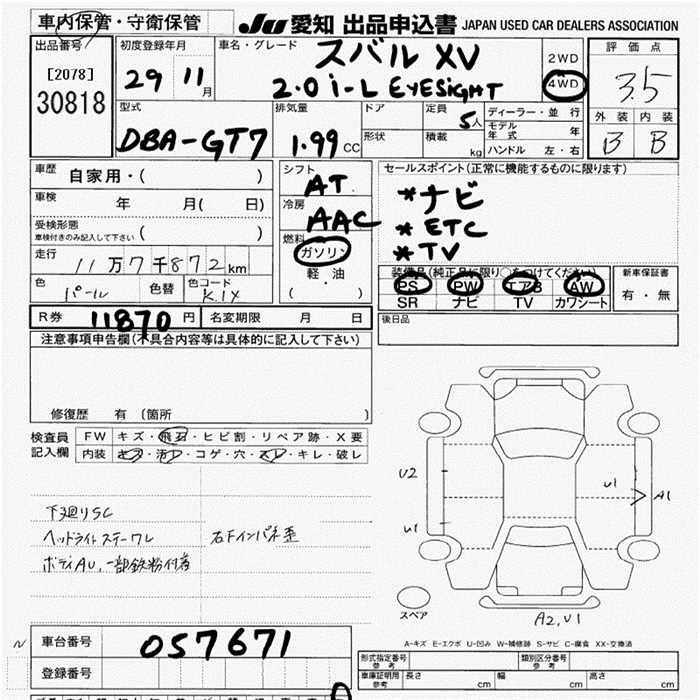 車内保管・守衛保管
JU 愛知 出品申込書 JAPAN USED CAR DEALERS ASSOCIATION
出品番号
[2078]
30818
初度登録年月
29 11月
車名・グレード
スバル XV
2.0 i-L EYESIGHT
2WD
4WD
評価点
3.5
外装 内装
B B
型式
DBA-GT7
排気量
1.99 CC
ドア
形状
定員
5人
積載
kg
ディーラー・並行
モデル年式 年
ハンドル 左・右
車歴 自家用・( )
車検 年 月( 日)
受検形態
車検付きのみ記入して下さい ( )
走行 11万7千872km
色 パール 色替 色コード K1X
シフト
AT
冷房
AAC
燃料
ガソリン
軽・油
( )
セールスポイント(正常に機能するものに限ります)
*ナビ
*ETC
*TV
装備品(純正品に限り○をつけてください)
PS PW エアB AW
SR ナビ TV カワシート
新車保証書
有・無
R券 11870円 名変期限 月 日
後日品
注意事項申告欄(不具合内容等は具体的に記入して下さい)
修復歴 有 (箇所 )
検査員記入欄
FW キズ・飛石・ヒビ割・リペア跡・X要
内装 キズ・汚レ・コゲ・穴・スレ・キレ・破レ
下廻りSC
ヘッドライトステーワレ 右下インパネ歪
ボディAU,一部鉄粉付着
U2
U1
U1
A1
スペア
A2,U1
A-キズ E-エクボ U-凹み W-補修跡 S-サビ C-腐食 XX-交換済
N
車台番号 057671
登録番号
形式指定番号 参考
類別区分番号 参考
車庫証明用 参考 長さ cm 幅 cm 高さ cm